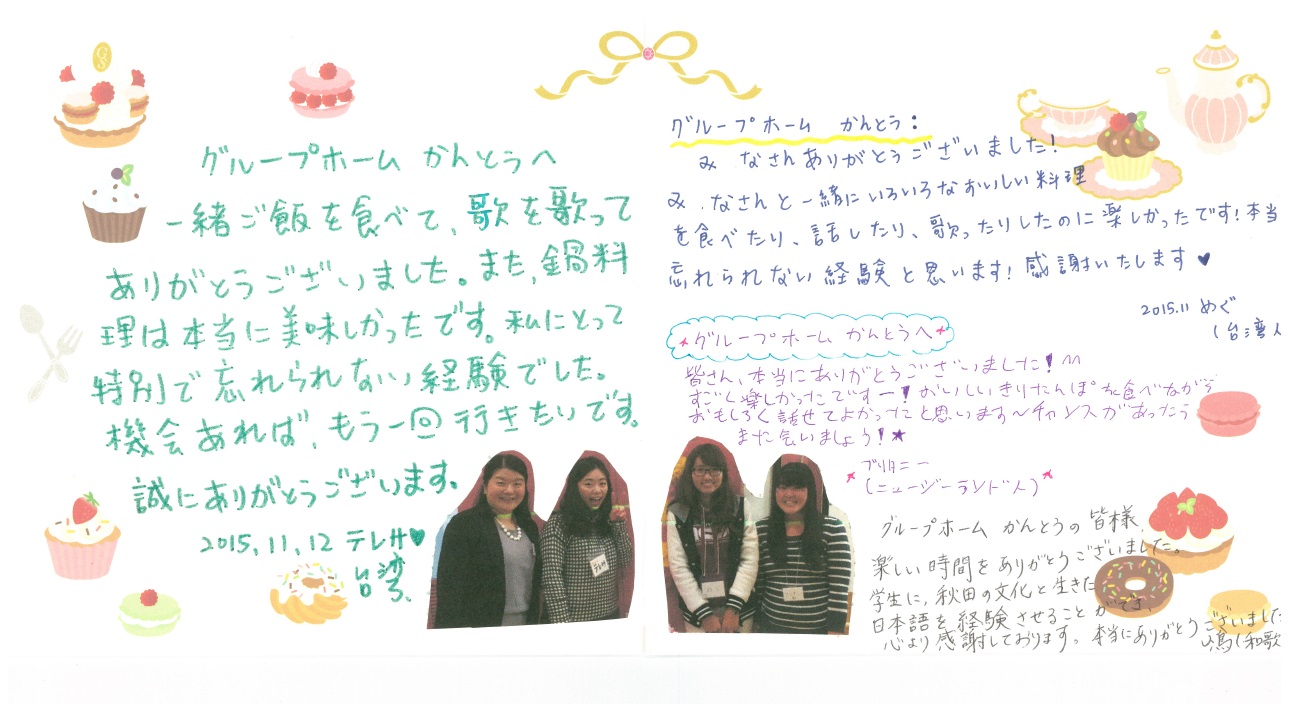 グループホーム かんとうへ
一緒ご飯を食べて、歌を歌って
ありがとうございました。また、鍋料
理は本当に美味しかったです。私にとって
特別で忘れられない経験でした。
機会あれば、もう一回行きたいです。
誠にありがとうございます。
2015.11.12 テレサ♥
台湾
グループホーム かんとう:
みなさんありがとうございました!
みなさんと一緒にいろいろなおいしい料理
を食べたり、話したり、歌ったりしたのに楽しかったです!本当
忘れられない経験と思います!感謝いたします♥
2015.11 めぐ
(台湾人
グループホーム かんとうへ
皆さん、本当にありがとうございました!^^
すごく楽しかったですー!おいしいきりたんぽを食べながら
おもしろく話せてよかったと思います〜チャンスがあったら
また会いましょう!★
ブリタニー
(ニュージーランド人)
グループホーム かんとうの皆様
楽しい時間をありがとうございました。
学生に、秋田の文化と生きた
日本語を経験させることができ、
心より感謝しております。本当にありがとうございました
嶋(和歌